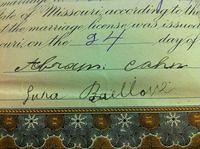 ate of Missouri, according to th
the marriage license was issued
ouri, on the 24 day of
Abram Cahn